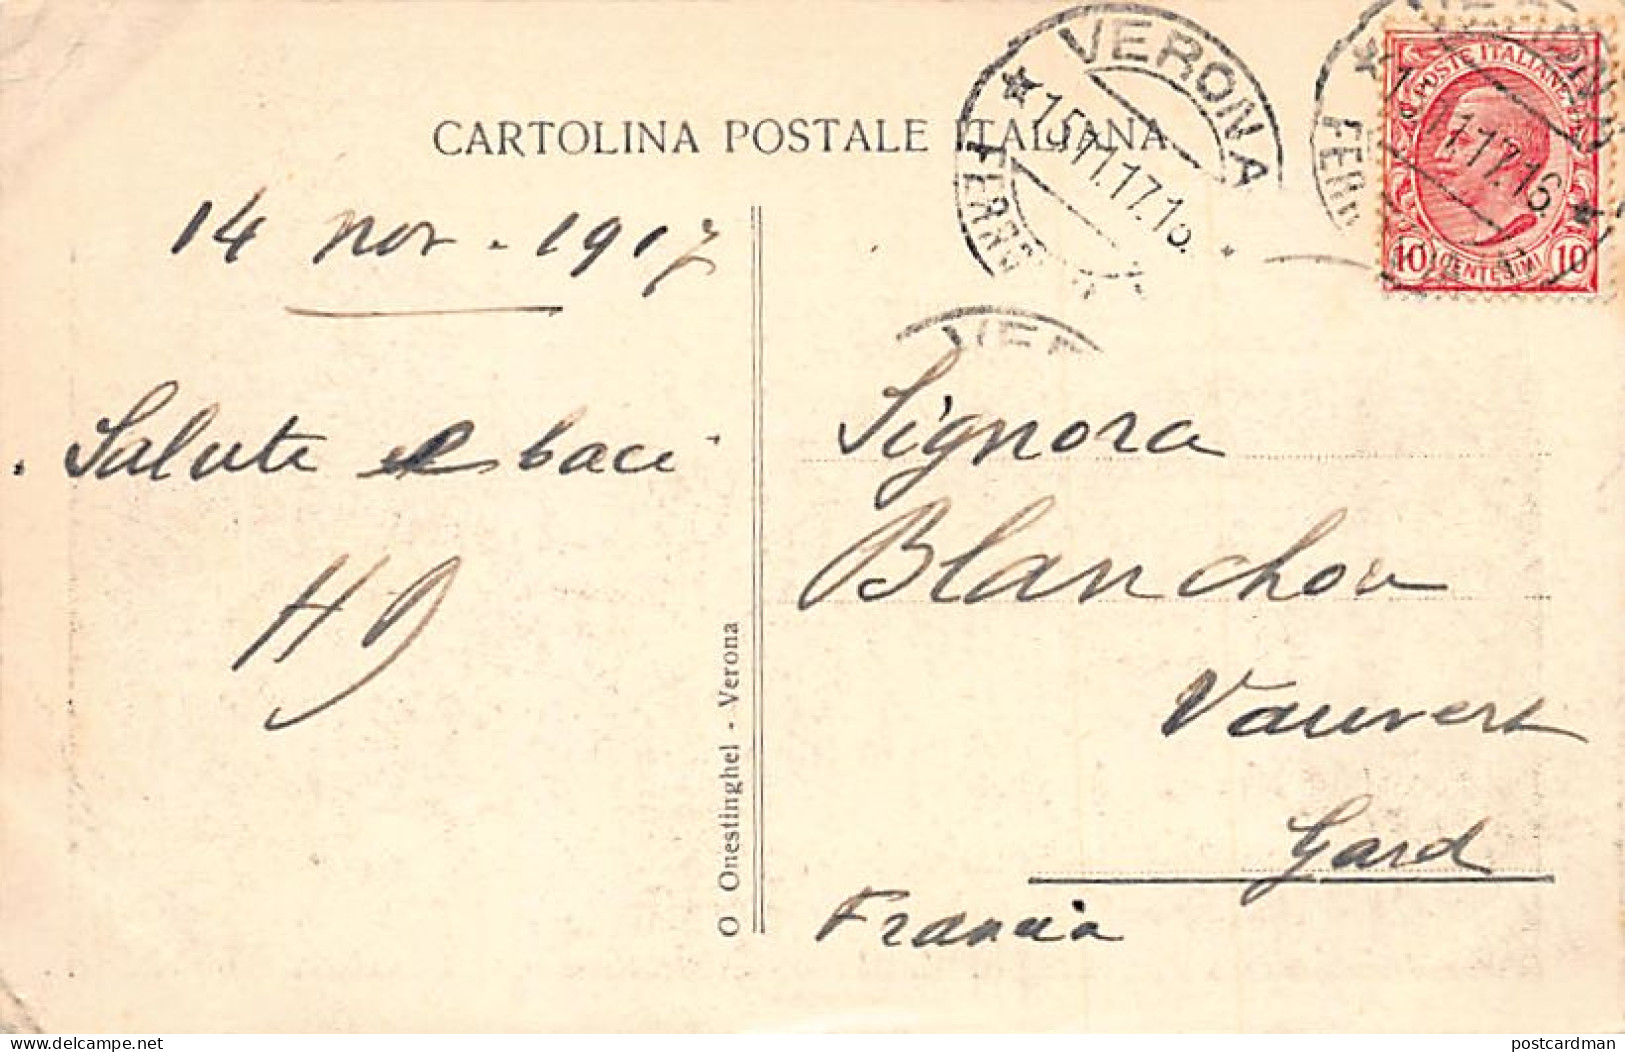 CARTOLINA POSTALE ITALIANA
VERONA
FERR
15.11.17.16
POSTE ITALIANE
10 CENTESIMI 10
14 nov. 1917
Salute e baci
O Onestinghel - Verona
Signora
Blanchou
Vauvert
Gard
Francia
www.delcampe.net
postcardman